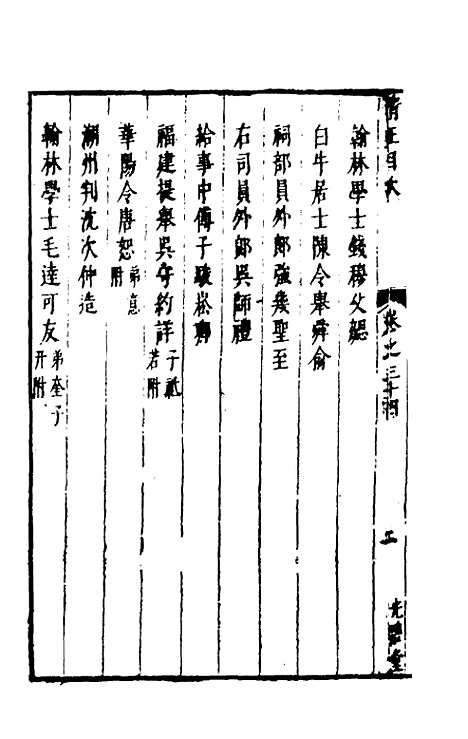 翰林學士錢穆父勰
白牛居士陳令舉舜俞
祠部員外郎強幾聖至
右司員外郎吳師禮
給事中傅子駿崧卿
福建提舉吳守約詳 子祇若附
華陽令唐恕 弟意附
湖州判沈次仲造
翰林學士毛達可友 弟奎子幵附
卷之三十四